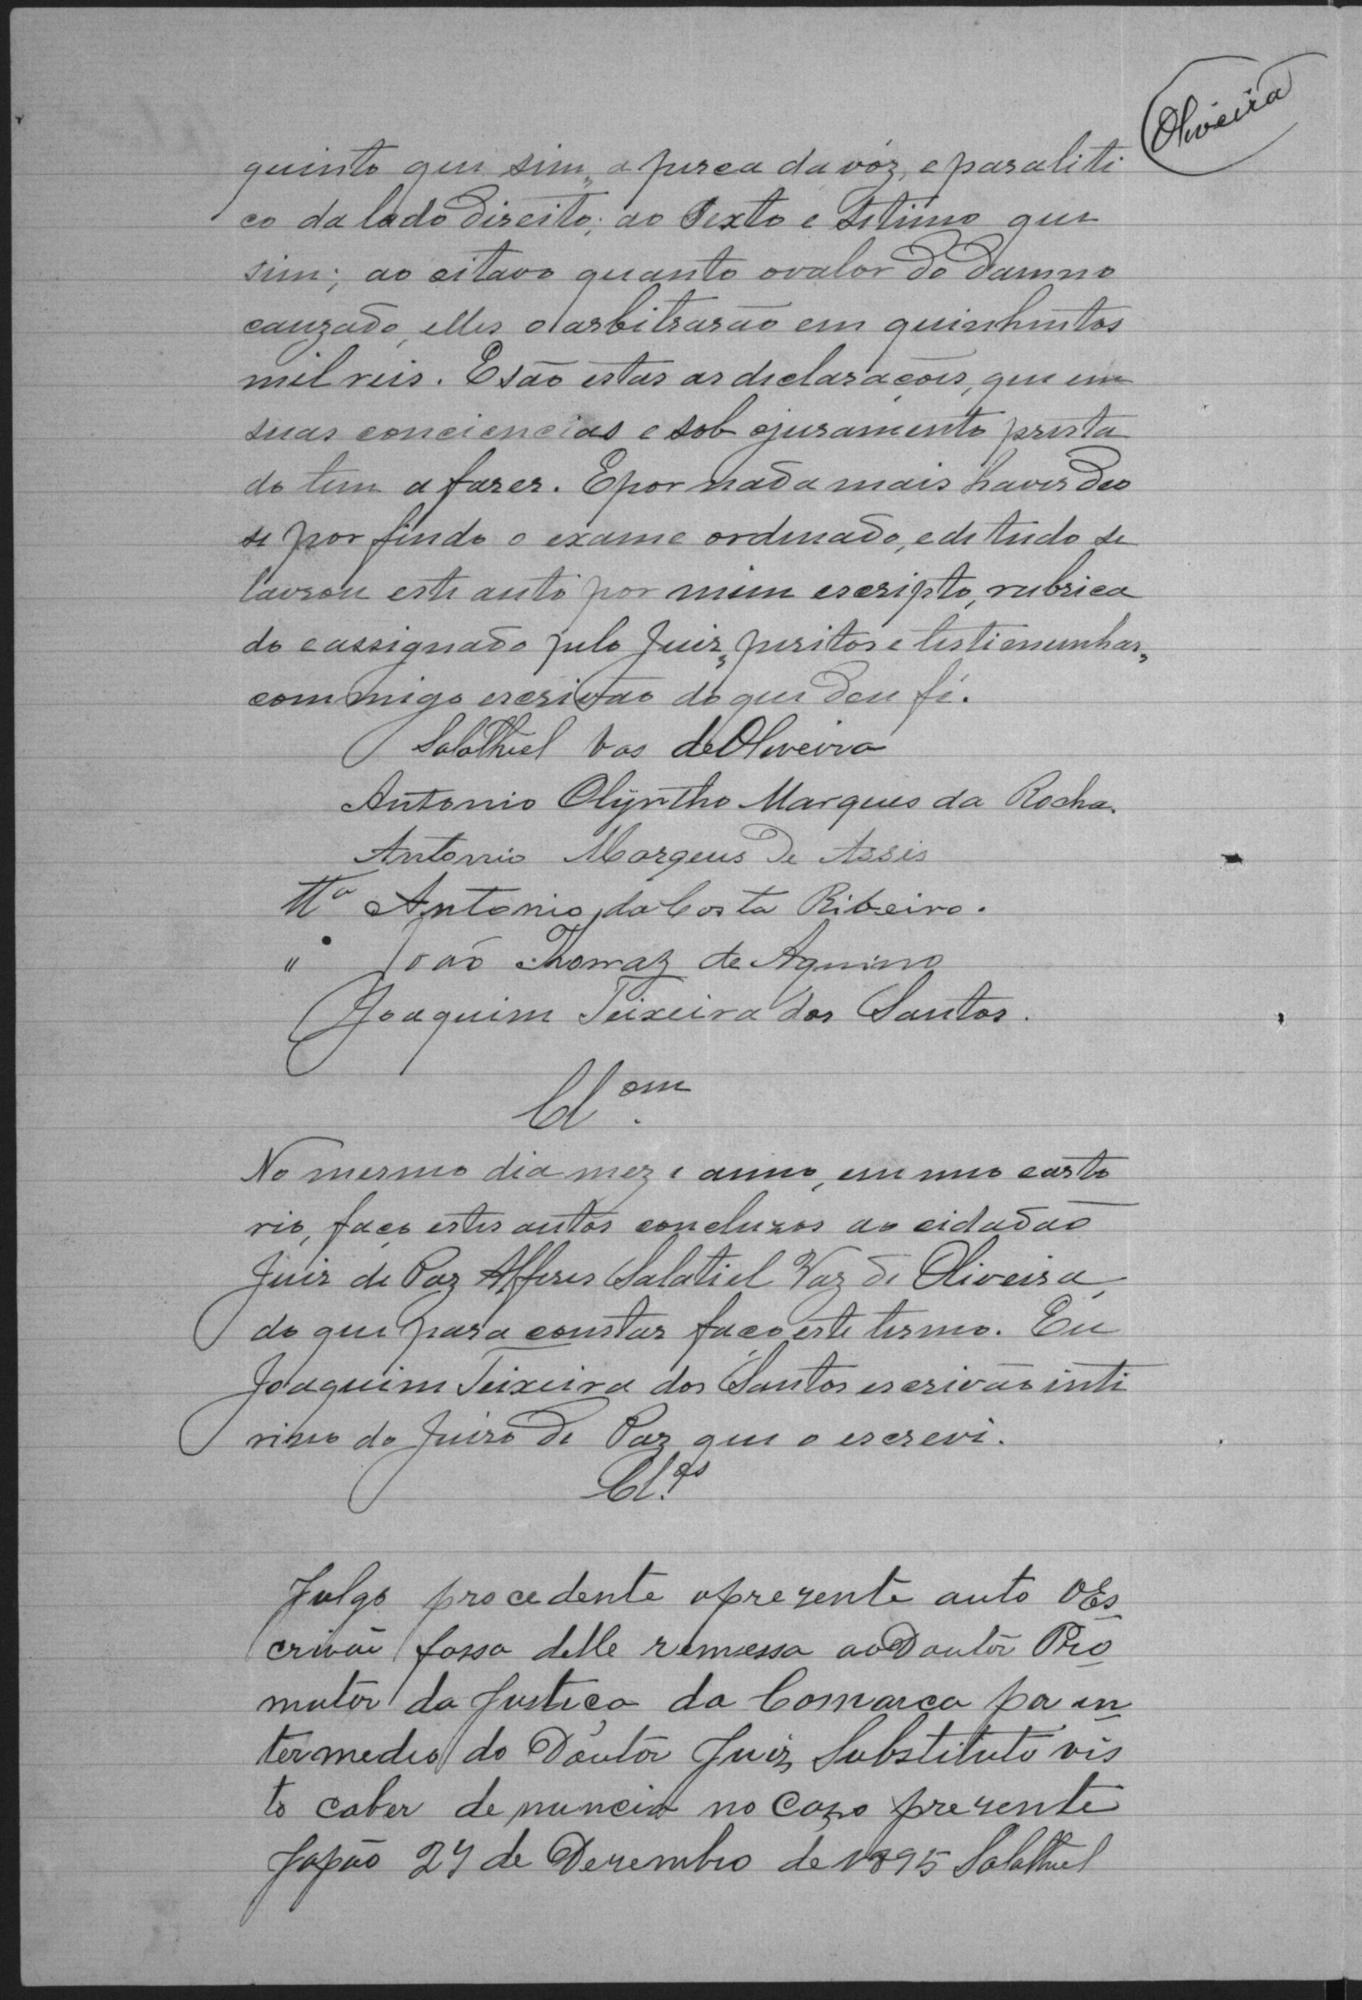 Oliveira
quinto que sim, a perca da vóz, e paraliti
co da lado direito; ao Sexto e Setimo que
sim; ao oitavo quanto o valor do damno
cauzado, elles o arbitrarão em quinhentos
mil reis. E são estas as declarações, que em
suas conciencias e sob o juramento presta
do tem a fazer. E por nada mais haver deo
se por findo o exame ordenado, e de tudo se
lavrou este auto por mim escripto, rubrica
do e assignado pelo Juiz, peritos e testemunhas,
commigo escrivão do que dou fé.
Salathiel Vas de Oliveira
Antonio Olyntho Marques da Rocha.
Antonio Marqeus de Assis
Ttª Antonio da Costa Ribeiro.
" João Thomaz de Aquino
Joaquim Teixeira dos Santos.
Cl.om
No mesmo dia mez e anno, em meo carto
rio, faço estes autos concluzos ao cidadão
Juiz de Paz Alferes Salatiel Vaz de Oliveira,
do que para constar faço este termo. Eu
Joaquim Teixeira dos Santos escrivão inte
rino do Juizo de Paz que o escrevi.
Cl.os
Julgo procedente o prezente auto O Es
crivão fassa delle remessa ao Doutôr Pro
mutôr da Justiça da Comarca por in
termedio do Doutôr Juiz Substituto vis
to caber denuncia no cazo prezente
Japão 27 de Dezembro de 1895 Salathiel